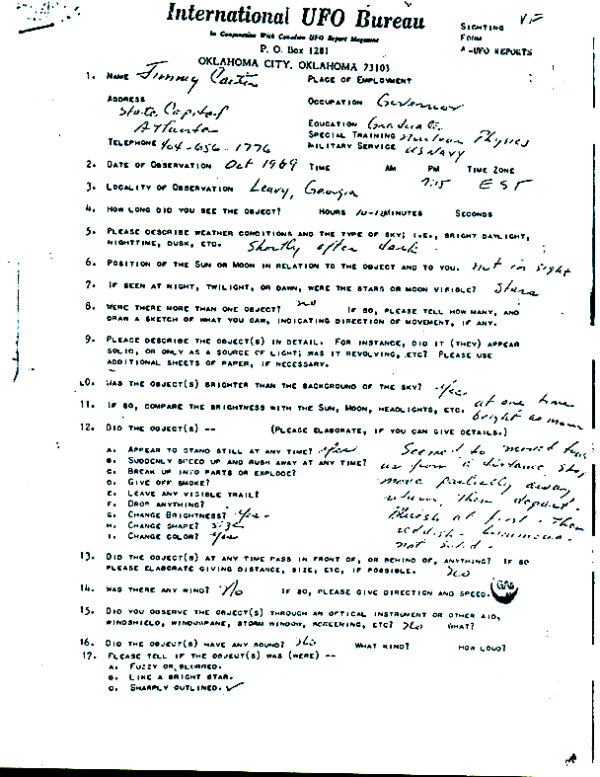 International UFO Bureau
In Cooperation With Canadian UFO Report Magazine
P. O. Box 1281
OKLAHOMA CITY, OKLAHOMA 73103
SIGHTING
FORM
A-UFO REPORTS
1. NAME Jimmy Carter PLACE OF EMPLOYMENT
ADDRESS State Capitol Atlanta
OCCUPATION Governor
EDUCATION Graduate
SPECIAL TRAINING Nuclear Physics
TELEPHONE 404-656-1776 MILITARY SERVICE US NAVY
2. DATE OF OBSERVATION Oct 1969 TIME AM PM 7:15 TIME ZONE EST
3. LOCALITY OF OBSERVATION Leary, Georgia
4. HOW LONG DID YOU SEE THE OBJECT? HOURS 10-12 MINUTES SECONDS
5. PLEASE DESCRIBE WEATHER CONDITIONS AND THE TYPE OF SKY; I.E., BRIGHT DAYLIGHT,
NIGHTTIME, DUSK, ETC. Shortly after dark.
6. POSITION OF THE SUN OR MOON IN RELATION TO THE OBJECT AND TO YOU. Not in sight
7. IF SEEN AT NIGHT, TWILIGHT, OR DAWN, WERE THE STARS OR MOON VISIBLE? Stars
8. WERE THERE MORE THAN ONE OBJECT? no IF SO, PLEASE TELL HOW MANY, AND
DRAW A SKETCH OF WHAT YOU SAW, INDICATING DIRECTION OF MOVEMENT, IF ANY.
9. PLEASE DESCRIBE THE OBJECT(S) IN DETAIL. FOR INSTANCE, DID IT (THEY) APPEAR
SOLID, OR ONLY AS A SOURCE OF LIGHT; WAS IT REVOLVING, ETC? PLEASE USE
ADDITIONAL SHEETS OF PAPER, IF NECESSARY.
10. WAS THE OBJECT(S) BRIGHTER THAN THE BACKGROUND OF THE SKY? yes
11. IF SO, COMPARE THE BRIGHTNESS WITH THE SUN, MOON, HEADLIGHTS, ETC. at one time
bright as moon
12. DID THE OBJECT(S) -- (PLEASE ELABORATE, IF YOU CAN GIVE DETAILS.)
A. APPEAR TO STAND STILL AT ANY TIME? yes
B. SUDDENLY SPEED UP AND RUSH AWAY AT ANY TIME?
C. BREAK UP INTO PARTS OR EXPLODE?
D. GIVE OFF SMOKE?
E. LEAVE ANY VISIBLE TRAIL?
F. DROP ANYTHING?
G. CHANGE BRIGHTNESS? yes
H. CHANGE SHAPE? size
I. CHANGE COLOR? yes
Seemed to move
from a distance, stop
move partially away
return, then depart.
Bluish at first, then
reddish. Luminous.
not solid.
13. DID THE OBJECT(S) AT ANY TIME PASS IN FRONT OF, OR BEHIND OF, ANYTHING? IF SO
PLEASE ELABORATE GIVING DISTANCE, SIZE, ETC, IF POSSIBLE. no
14. WAS THERE ANY WIND? No IF SO, PLEASE GIVE DIRECTION AND SPEED.
15. DID YOU OBSERVE THE OBJECT(S) THROUGH AN OPTICAL INSTRUMENT OR OTHER AID,
WINDSHIELD, WINDOWPANE, STORM WINDOW, SCREENING, ETC? no WHAT?
16. DID THE OBJECT(S) HAVE ANY SOUND? no WHAT KIND? HOW LOUD?
17. PLEASE TELL IF THE OBJECT(S) WAS (WERE) --
A. FUZZY OR BLURRED.
B. LIKE A BRIGHT STAR.
C. SHARPLY OUTLINED. ✓